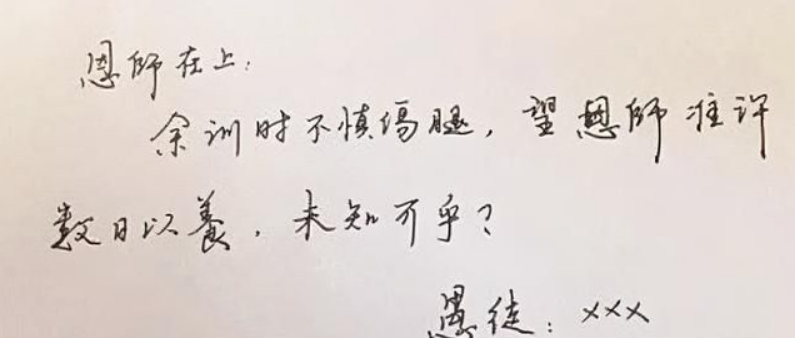 恩师在上:
余训时不慎伤腿,望恩师准许
数日以養,未知可乎?
愚徒:×××